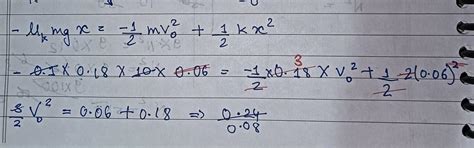 - μₖmgx = -1/2 mv₀² + 1/2 kx²
- 0.1 × 0.18 × 10 × 0.06 = -1/2 × 0.18 × V₀² + 1/2 2(0.06)²
3
3/2 V₀² = 0.06 + 0.18 ⇒ 0.24/0.08